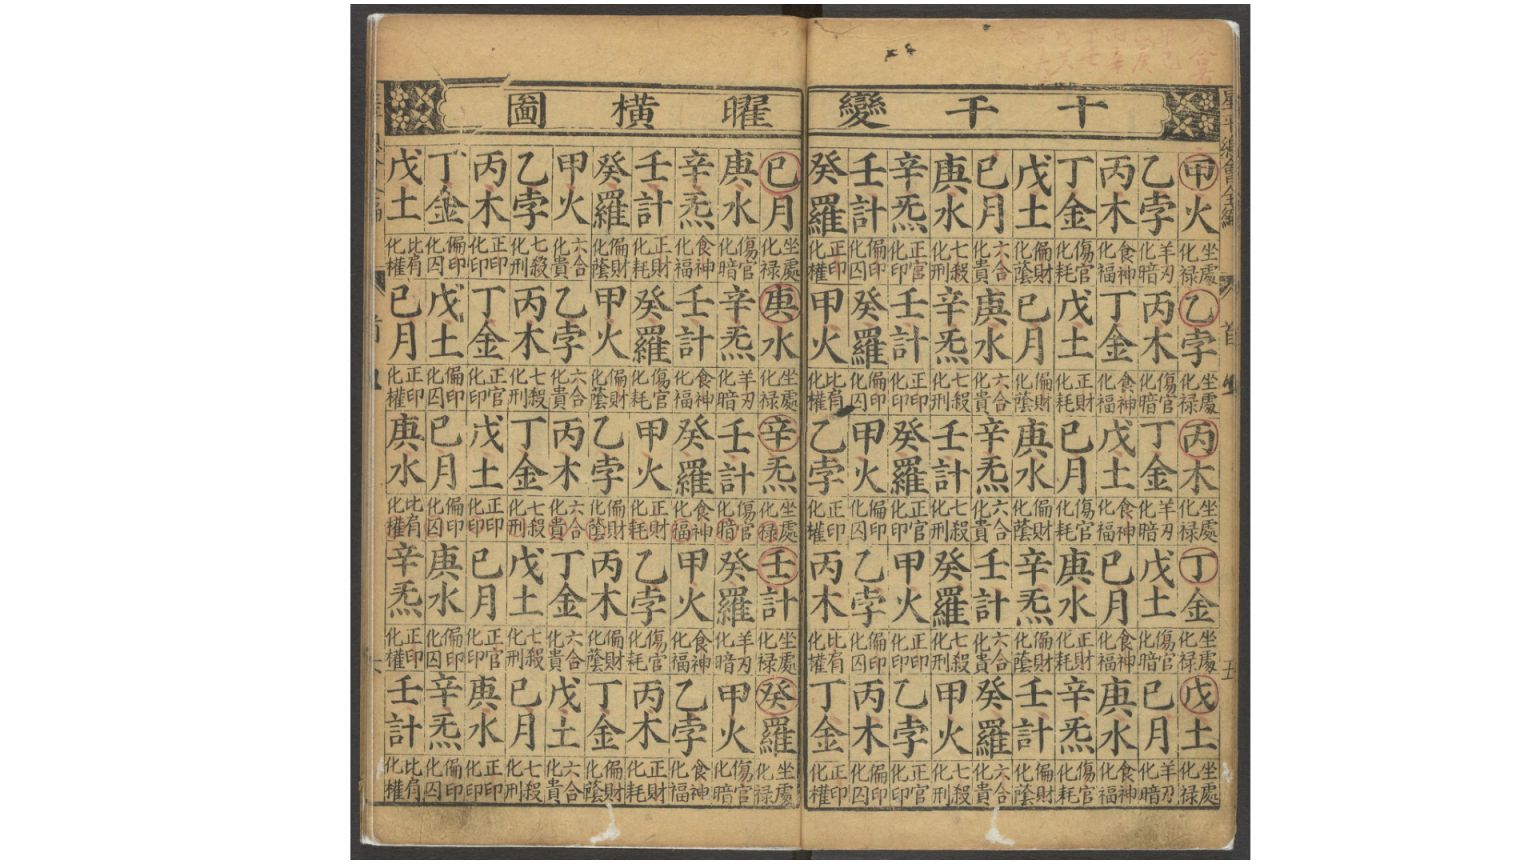 十干變曜橫圖
星平總會全編
首
五
甲火 乙孛 丙木 丁金 戊土 己月 庚水 辛炁 壬計 癸羅
坐處化禄 羊刃化暗 食神化福 傷官化耗 偏財化蔭 六合化貴 七殺化刑 正官化印 偏印化囚 正印化權
乙孛 丙木 丁金 戊土 己月 庚水 辛炁 壬計 癸羅 甲火
坐處化禄 傷官化暗 食神化福 正財化耗 偏財化蔭 六合化貴 七殺化刑 正印化印 偏印化囚 比肩化權
丙木 丁金 戊土 己月 庚水 辛炁 壬計 癸羅 甲火 乙孛
坐處化禄 羊刃化暗 食神化福 傷官化耗 偏財化蔭 六合化貴 七殺化刑 正官化印 偏印化囚 正印化權
丁金 戊土 己月 庚水 辛炁 壬計 癸羅 甲火 乙孛 丙木
坐處化禄 傷官化暗 食神化福 正財化耗 偏財化蔭 六合化貴 七殺化刑 正印化印 偏印化囚 比肩化權
戊土 己月 庚水 辛炁 壬計 癸羅 甲火 乙孛 丙木 丁金
坐處化禄 羊刃化暗 食神化福 傷官化耗 偏財化蔭 六合化貴 七殺化刑 正官化印 偏印化囚 正印化權
己月 庚水 辛炁 壬計 癸羅 甲火 乙孛 丙木 丁金 戊土
坐處化禄 傷官化暗 食神化福 正財化耗 偏財化蔭 六合化貴 七殺化刑 正印化印 偏印化囚 比肩化權
庚水 辛炁 壬計 癸羅 甲火 乙孛 丙木 丁金 戊土 己月
坐處化禄 羊刃化暗 食神化福 傷官化耗 偏財化蔭 六合化貴 七殺化刑 正官化印 偏印化囚 正印化權
辛炁 壬計 癸羅 甲火 乙孛 丙木 丁金 戊土 己月 庚水
坐處化禄 傷官化暗 食神化福 正財化耗 偏財化蔭 六合化貴 七殺化刑 正印化印 偏印化囚 比肩化權
壬計 癸羅 甲火 乙孛 丙木 丁金 戊土 己月 庚水 辛炁
坐處化禄 羊刃化暗 食神化福 傷官化耗 偏財化蔭 六合化貴 七殺化刑 正官化印 偏印化囚 正印化權
癸羅 甲火 乙孛 丙木 丁金 戊土 己月 庚水 辛炁 壬計
坐處化禄 傷官化暗 食神化福 正財化耗 偏財化蔭 六合化貴 七殺化刑 正印化印 偏印化囚 比肩化權